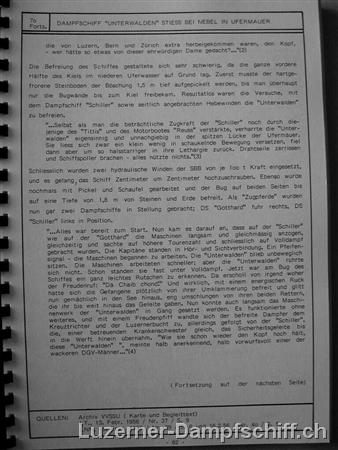 To
Forts.
DAMPFSCHIFF "UNTERWALDEN" STIESS BEI NEBEL IN UFERMAUER
die von Luzern, Bern und Zürich extra herbeigekommen waren, den Kopf,
- wer hätte so etwas von dieser ehrwürdigen Dame gedacht?..."(2)
Die Befreiung des Schiffes gestaltete sich sehr schwierig, da die ganze vordere
Hälfte des Kiels im niederen Uferwasser auf Grund lag. Zuerst musste der hartge-
frorene Steinboden der Böschung 1,5 m tief aufgepickelt werden, bis man überhaupt
nur die Bugwände bis zum Kiel freibekam. Resultatlos waren die Versuche, mit
dem Dampfschiff "Schiller" sowie seitlich angebrachten Hebewinden die "Unterwalden"
zu befreien.
"...Selbst als man die beträchtliche Zugkraft der "Schiller" noch durch die-
jenige des "Titlis" und des Motorbootes "Reuss" verstärkte, verharrte die "Unter-
walden" eigensinnig und unnachgiebig in der spitzen Lücke der Ufermauer.
Sie liess sich zwar ein klein wenig in schaukelnde Bewegung versetzen, fiel
dann aber um so halsstarriger in ihre Lethargie zurück. Drahtseile zerrissen
und Schiffspoller brachen - alles nützte nichts."(3)
Schliesslich wurden zwei hydraulische Winden der SBB von je 100 t Kraft eingesetzt,
und es gelang das Schiff Zentimeter um Zentimeter hochzuschrauben. Ebenso wurde
nochmals mit Pickel und Schaufel gearbeitet und der Bug auf beiden Seiten bis
auf eine Tiefe von 1,8 m von Steinen und Erde befreit. Als "Zugpferde" wurden
nun gar zwei Dampfschiffe in Stellung gebracht; DS "Gotthard" fuhr rechts, DS
"Schiller" links in Position.
"...Alles war bereit zum Start. Nun kam es darauf an, dass auf der "Schiller"
wie auf der "Gotthard" die Maschinen langsam und gleichmässig anzogen,
gleichzeitig und sachte auf höhere Tourenzahl und schliesslich auf Volldampf
gebracht wurden. Die Kapitäne standen in Hör- und Sichtverbindung. Ein Pfeifen-
signal - die Maschinen begannen zu arbeiten. Die "Unterwalden" blieb unbeweglich
sitzen. Die Maschinen arbeiteten schneller; aber die "Unterwalden" rührte
sich nicht. Schon standen sie fast unter Volldampf. Jetzt war am Bug des
Schiffes ein ganz leichtes Rutschen zu erkennen. Da erscholl von irgend woher
der Freudenruf: "Da Chaib chond!" Und wirklich, mit einem energischen Ruck
hatte sich die Gefangene plötzlich von ihrer Umklammerung befreit und glitt
nun gemächlich in den See hinaus, eng umschlungen von ihren beiden Rettern,
die ihr bis weit hinaus das Geleite gaben. Nun konnte auch langsam das Maschi-
nenwerk der "Unterwalden" in Gang gesetzt werden. Es funktionierte ohne
weiteres, und mit einem Freudenpfiff wandte sich der befreite Dampfer dem
Kreuztrichter und der Luzernerbucht zu, allerdings gefolgt von der "Schiller",
die, einer betreuenden Krankenschwester gleich, das Sicherheitsgeleite bis
in die Werft hinein übernahm. "Wie sie schon wieder den Kopf hoch hält,
diese "Unterwalden" ", meinte halb anerkennend, halb vorwurfsvoll einer der
wackeren DGV-Männer..."(4)
(Fortsetzung auf der nächsten Seite)
QUELLEN:
Archiv VVSSU ( Karte und Begleittext)
Febr. 1956 / Nr. 37 / S. 9
- 62 -
Luzerner-Dampfschiff.ch